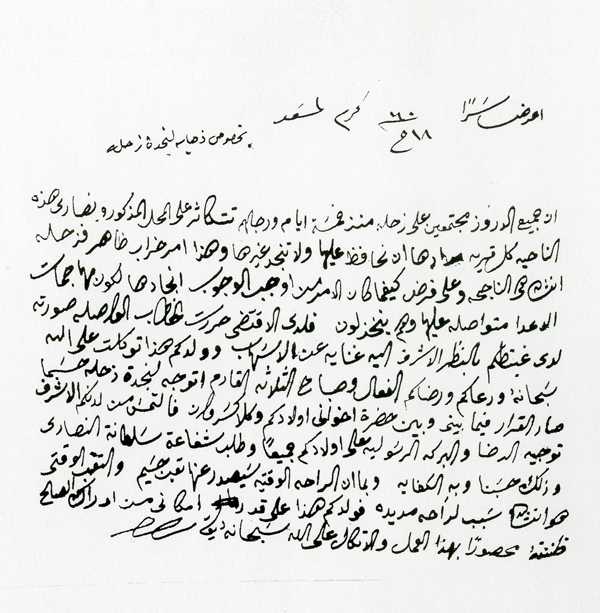 اعرض سرًا
٨٦٠ ١٨ كرم لسعد
بخصوص ذهابه لنجدة زحله
ان جميع الدروز مجتمعين على زحله منذ خمسة ايام ورجالهم تتكاثر على المحل المذكور ونصارى هذه
الناحيه كل قريه ها ان نحافظ عليها ولا تنجد غيرها وهذا امر خراب ظاهر فزحله
هي الناحيه وعلى فرض كيفما كان الامر من اوجب الوجوب انجادها لكون مهاجمات
الاعدا متواصله عليها وهم ينخذلون فلدى الاقتضى حررت الخطاب الواصله صورته
لدى غبطتكم بالنظر الاشرف اليه غنايه عن الاسهاب وولدكم هذا توكلت على الله
سبحانه ودعاكم ورضاكم الفعال وصباح الثلاثه القادم اتوجه لنجدة زحله حسبما
صار القرار فيما بيني وبين حضرة اخواني اولادكم وكلا كسروان فالتمس من لدنكم الاشرف
توجيه الرضا والبركه الرسوليه على اولادكم جميعًا وطلب شفاعة سلطانة النصارى
وذلك حسبنا وبه الكفايه وبما ان الراحه الوقتيه سيصدر عنها تعب جسيم والتعب الوقتي
هو سبب لراحه مديده فولدكم هذا على قدر امكاني من ادراك الصالح
ظننته محصورًا بهذا العمل والاتكال على الله سبحانه